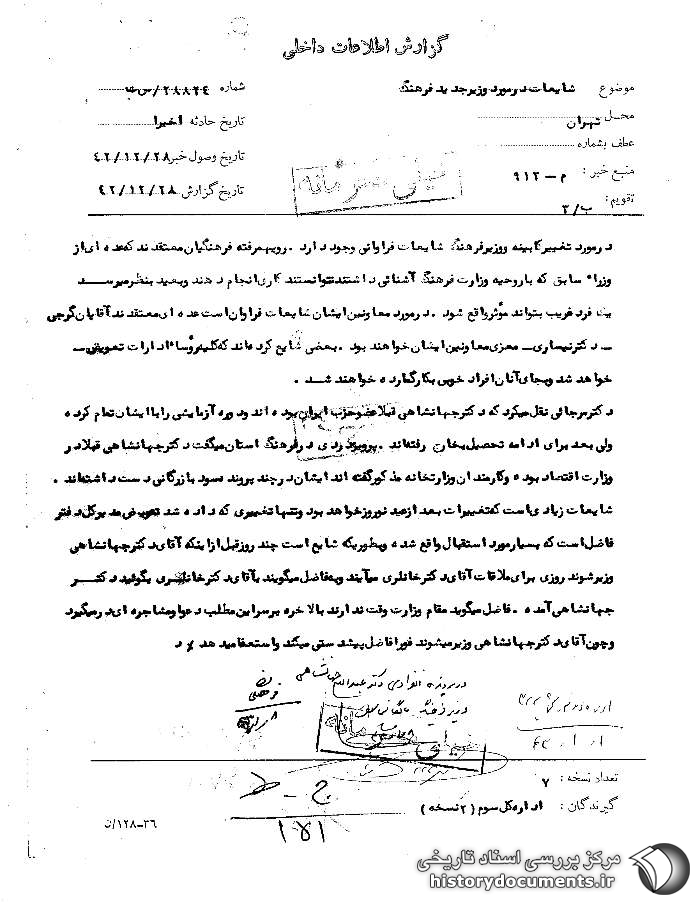 گزارش اطلاعات داخلی
موضوع شایعات در مورد وزیر جدید فرهنگ
شماره ۲۸۸۲۴/س ت
محل تهران
تاریخ حادثه اخیرا
عطف بشماره
تاریخ وصول خبر ۴۲/۱۲/۲۸
منبع خبر : م – ۹۱۲
تاریخ گزارش ۴۲/۱۲/۲۸
تقویم : ب/۳
خیلی محرمانه
در مورد تغییر کابینه و وزیر فرهنگ شایعات فراوانی وجود دارد . رویهمرفته فرهنگیان معتقدند که عده ای از
وزراء سابق که با روحیه وزارت فرهنگ آشنائی داشتند نتوانستند کاری انجام دهند و بعید بنظر میرسد
یک فرد غریب بتواند مؤثر واقع شود . در مورد معاونین ایشان شایعات فراوان است عده ای معتقدند آقایان گرجی
– دکتر نیساری – معزی معاونین ایشان خواهند بود . بعضی شایع کرده اند که کلیه رؤساء ادارات تعویض
خواهد شد و بجای آنان افراد خوبی بکار گمارده خواهند شد .
دکتر مرجائی نقل میکرد که دکتر جهانشاهی قبلا عضو حزب ایران بوده اند و دوره آزمایشی را با ایشان تمام کرده
ولی بعد برای ادامه تحصیل بخارج رفته اند . پرویز یزدی در فرهنگ استان میگفت دکتر جهانشاهی قبلا در
وزارت اقتصاد بوده و کارمندان وزارتخانه مذکور گفته اند ایشان در چند پرونده سود بازرگانی دست داشته اند .
شایعات زیادی است که تغییرات بعد از عید نوروز خواهد بود و تنها تغییری که داده شد تعویض مدیر کل دفتر
فاضل است که بسیار مورد استقبال واقع شده و بطوریکه شایع است چند روز قبل از اینکه آقای دکتر جهانشاهی
وزیر شوند روزی برای ملاقات آقای دکتر خانلری میآیند و بفاضل میگویند بآقای دکتر خانلری بگوئید دکتر
جهانشاهی آمده . فاضل میگوید مقام وزارت وقت ندارند بالاخره بر سر این مطلب دعوا و مشاجره ای در میگیرد
و چون آقای دکتر جهانشاهی وزیر میشوند فورا فاضل پیشدستی میکند و استعفا میدهد
در پرونده انفرادی دکتر عبداله جهانشاهی
وزیر فرهنگ بایگانی
خیلی محرمانه
تعداد نسخه : ۷
گیرندگان : اداره کل سوم (۲ نسخه)
ج – ط
۱۸۱
۱۲۸-۳۶/ن
مرکز بررسی اسناد تاریخی
historydocuments.ir